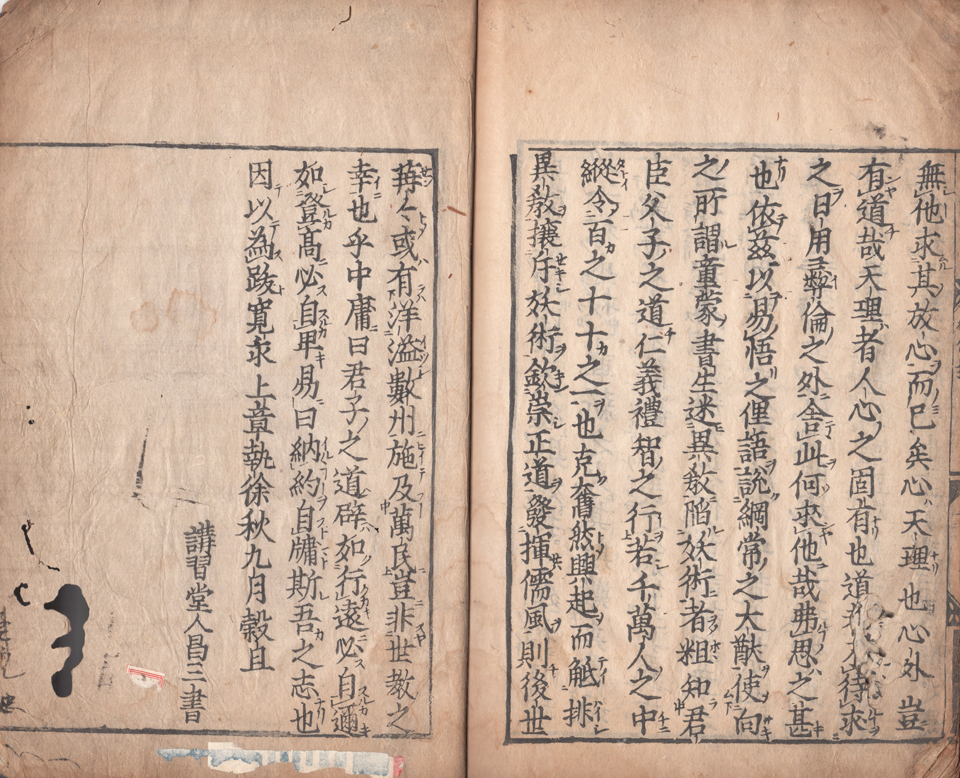 無他求其放心而已矣心天理也心外豈
有道哉天理者人心之固有也道非待求
之日用彝倫之外舎此何求他哉弗思之甚
也依茲以易悟之俚語說綱常之大猷使向
之所謂童蒙書生迷異教陥妖術者粗知君
臣父子之道仁義禮智之行若千萬人之中
縱令百之十十之一也克奮然興起而觝排
異教攘斥妖術欽崇正道發揮儒風則後世
再々或有洋溢數州施及萬民豈非世教之
幸也乎中庸曰君子之道辟如行遠必自邇
如登髙必自卑易曰納約自牖斯吾之志也
因以為跋寛永上章執徐秋九月榖旦
講習堂人昌三書